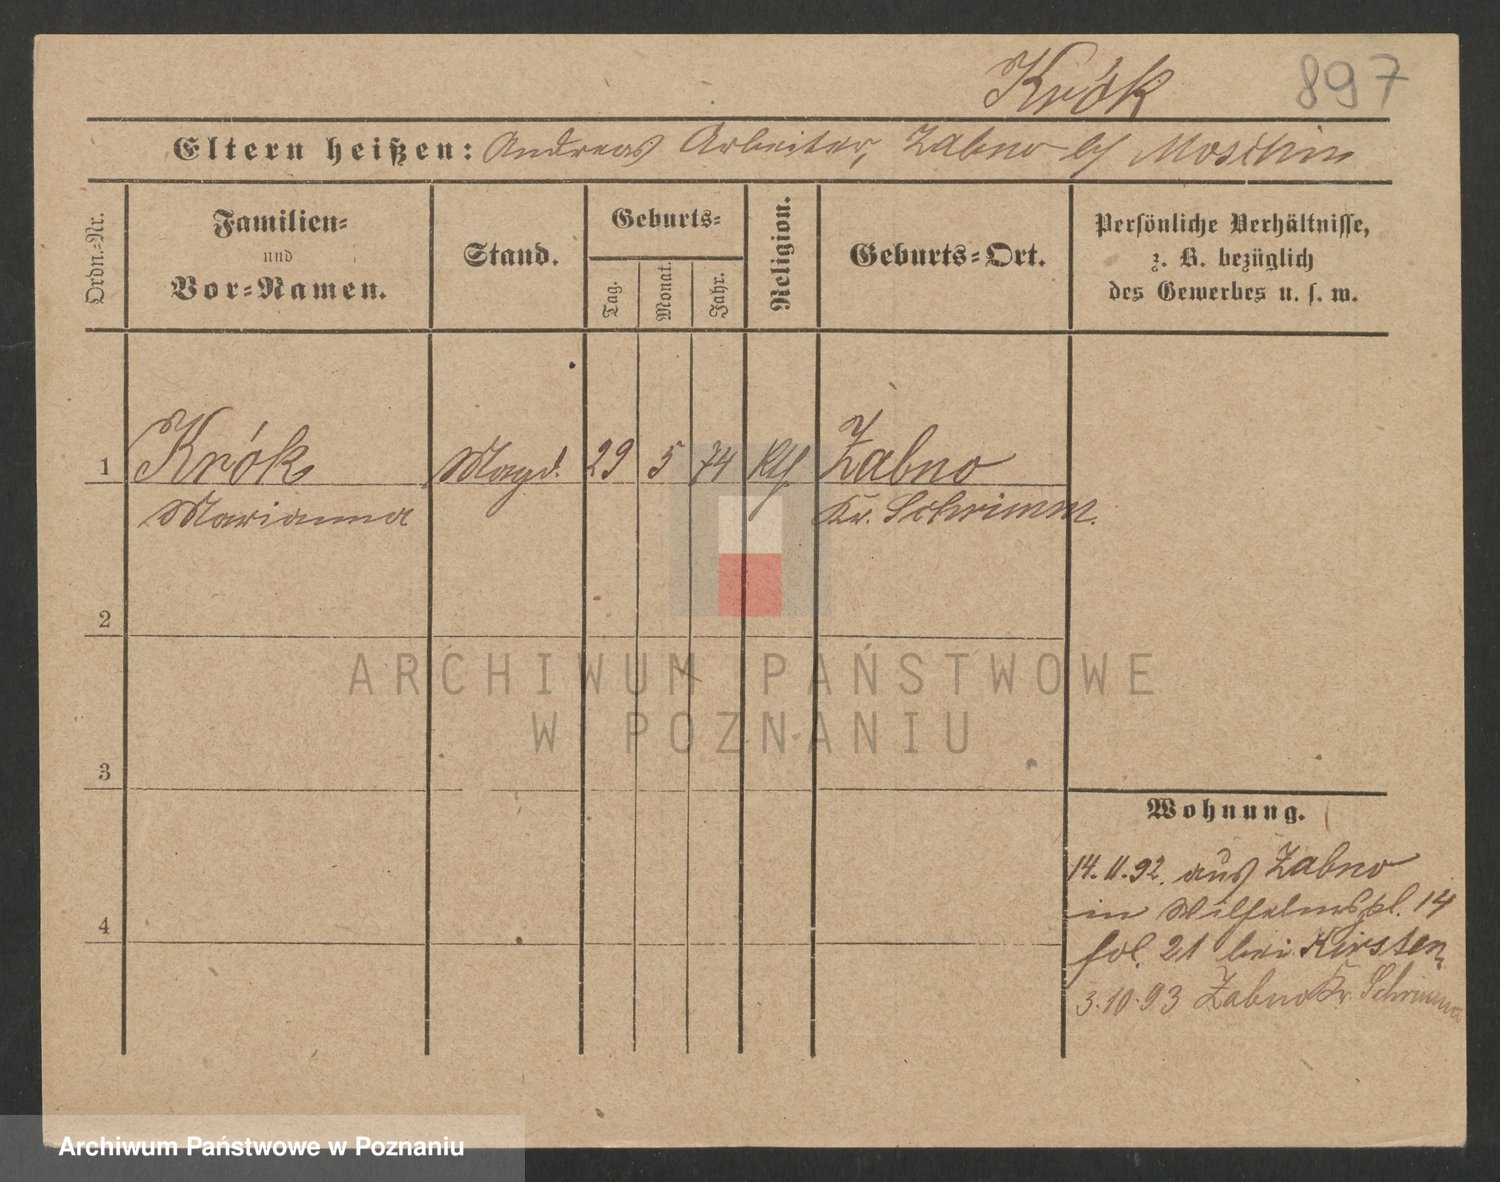 Krók 897
Eltern heißen: Andreas Arbeiter, Zabno b/ Moschin
Ordn.-Nr.
Familien-
und
Vor-Namen.
Stand.
Geburts-
Tag.
Monat.
Jahr.
Religion.
Geburts-Ort.
Persönliche Verhältnisse,
z. B. bezüglich
des Gewerbes u. s. w.
1 Krók Magd. 29 5 74 Zabno
Marianna Kr. Schrimm.
2
ARCHIWUM PAŃSTWOWE
W POZNANIU
3
Wohnung.
14.11.92. aus Zabno
in Wilhelmspl. 14
4
fol. 21 bei Kirsten,
3.10.93 Zabno Kr. Schrimm
Archiwum Państwowe w Poznaniu